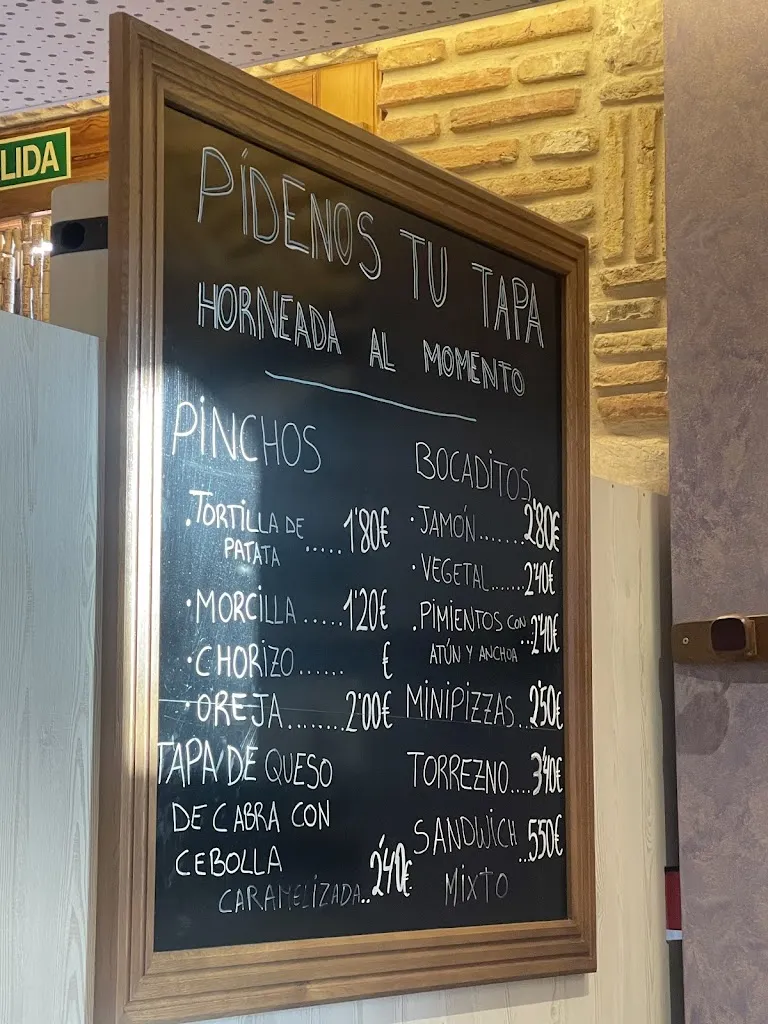 LIDA
PÍDENOS TU TAPA
HORNEADA AL MOMENTO
PINCHOS
.TORTILLA DE
PATATA ..... 1'80€
·MORCILLA ..... 1'20€
·CHORIZO ...... €
·OREJA ........ 2'00€
TAPA DE QUESO
DE CABRA CON
CEBOLLA
CARAMELIZADA.. 2'40€
BOCADITOS
·JAMÓN....... 2'80€
·VEGETAL...... 2'40€
.PIMIENTOS CON
ATÚN Y ANCHOA ...2'40€
MINIPIZZAS...2'50€
TORREZNO....3'40€
SANDWICH ..5'50€
MIXTO